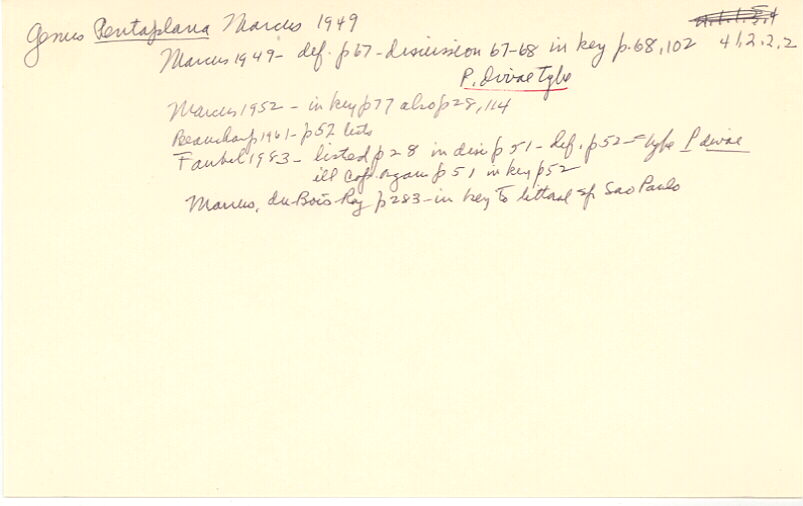 Genus Pentaplana Marcus 1949
Marcus 1949 - def. p67 - discussion 67-68 in key p.68,102 41.2.2.2
P. divae Type
Marcus 1952 - in key p77 also p28, 114
Beauchamp 1961 - p52 lists
Faubel 1983 - listed p28 in disc p51 - def. p52 = type P divae
ill cop organ p51 in key p52
Marcus, du Bois-Ray p283 - in key to littoral sp Sao Paulo